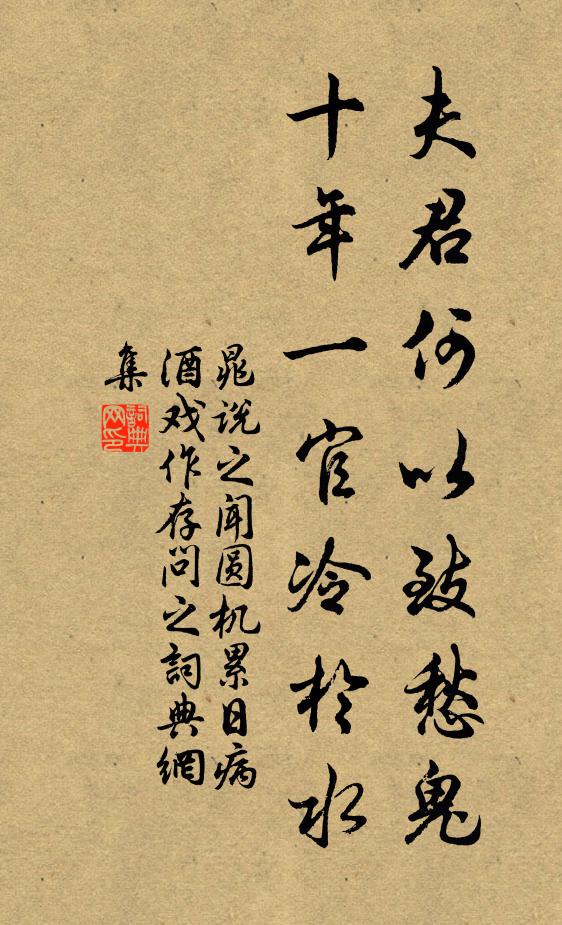 夫君何以致愁鬼
十年一官冷於水
晁说之闻圆机累日病
酒戏作存问之詞典網
集
詞典
网印